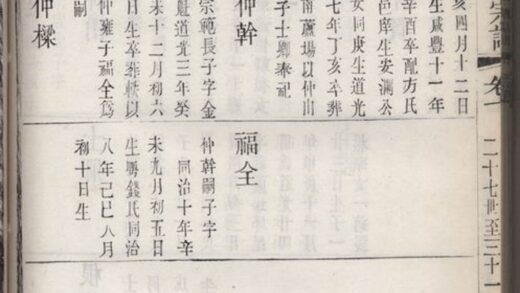 宗譜 卷一 二十七世至三十一
亥四月十二日
生咸豐十一年
辛酉卒配方氏
邑庠生安瀾公
女同庚生道光
七年丁亥卒葬
南蘆場以仲山
子士卿奉祀
仲幹
宗範長子字金
道光三年癸
未十二月初六
日生卒葬軼以
仲雍子福全為
嗣
仲樑
福全
仲幹嗣子字
同治十年辛
未九月初五日
生聘錢氏同治
八年己巳八月
初十日生